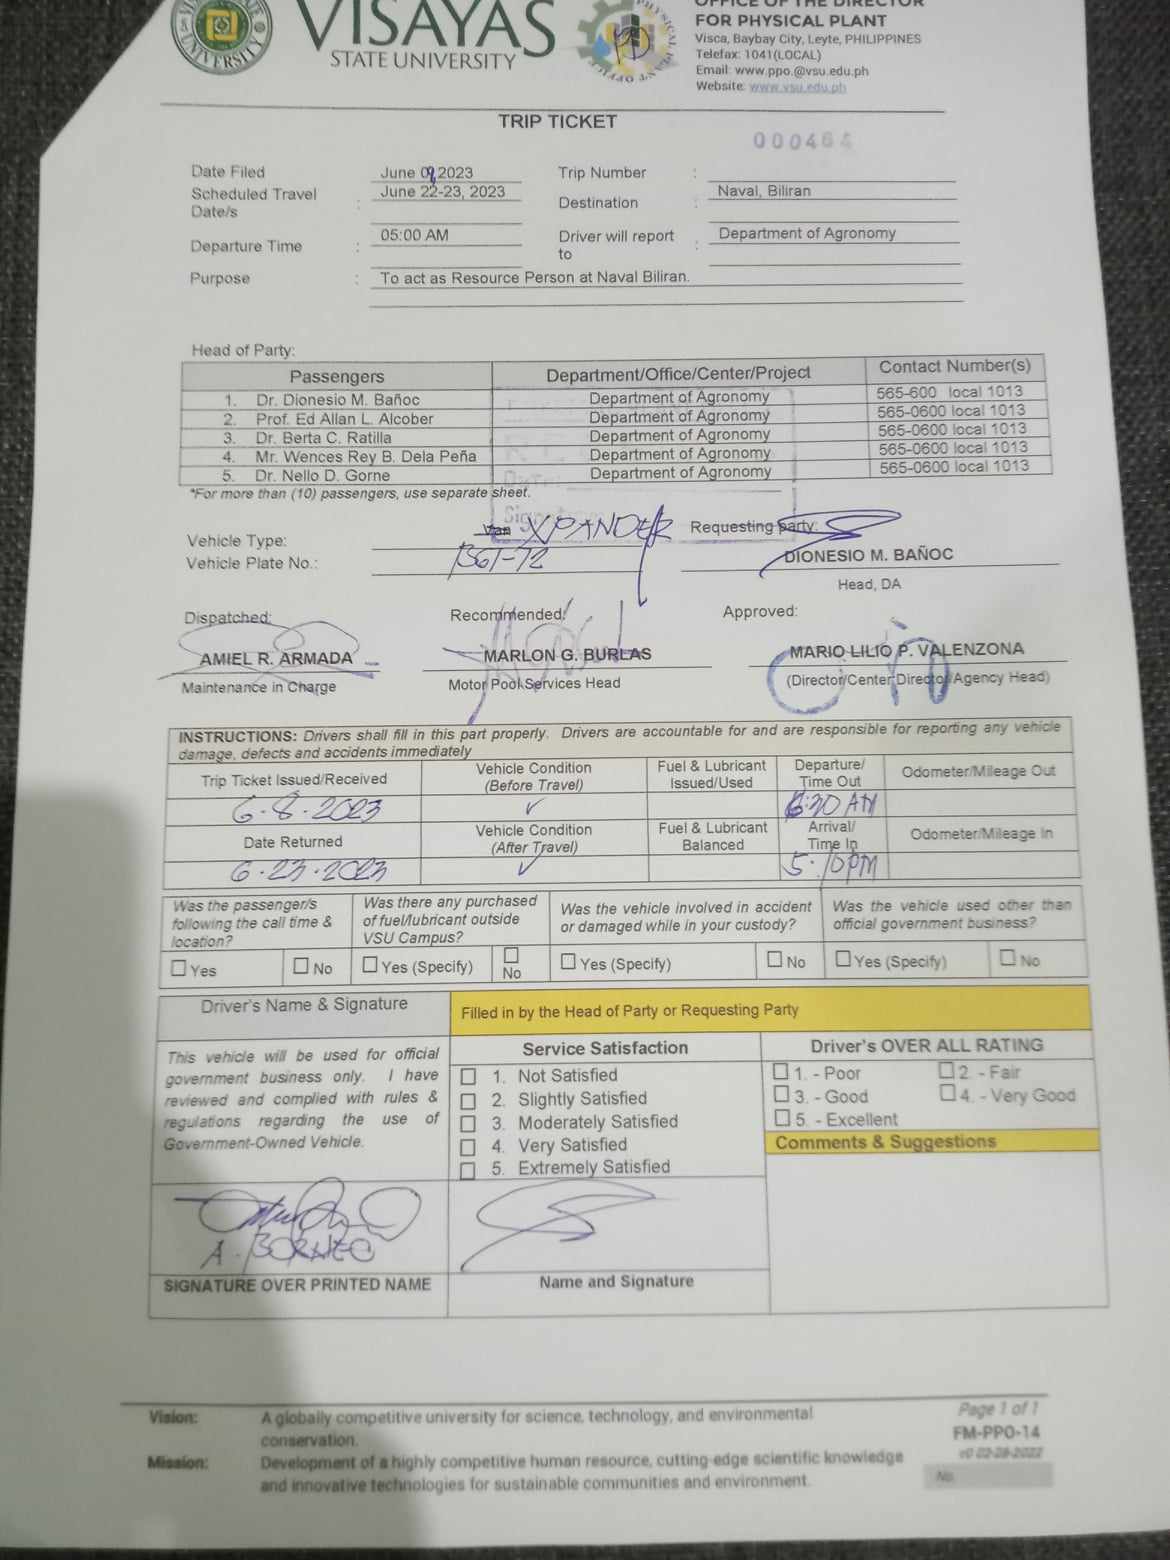 VISAYAS
STATE UNIVERSITY
UNIVERSITY
OFFICE OF THE DIRECTOR
FOR PHYSICAL PLANT
Visca, Baybay City, Leyte, PHILIPPINES
Telefax: 1041(LOCAL)
Email: www.ppo.@vsu.edu.ph
Website: www.vsu.edu.ph
TRIP TICKET
000464
Date Filed June 09, 2023 Trip Number :
Scheduled Travel Date/s : June 22-23, 2023 Destination : Naval, Biliran
Departure Time : 05:00 AM Driver will report to : Department of Agronomy
Purpose : To act as Resource Person at Naval Biliran.
Head of Party:
Passengers Department/Office/Center/Project Contact Number(s)
1. Dr. Dionesio M. Bañoc Department of Agronomy 565-600 local 1013
2. Prof. Ed Allan L. Alcober Department of Agronomy 565-0600 local 1013
3. Dr. Berta C. Ratilla Department of Agronomy 565-0600 local 1013
4. Mr. Wences Rey B. Dela Peña Department of Agronomy 565-0600 local 1013
5. Dr. Nello D. Gorne Department of Agronomy 565-0600 local 1013
*For more than (10) passengers, use separate sheet.
Vehicle Type: Van XPANDER Requesting party:
Vehicle Plate No.: DIONESIO M. BAÑOC
Head, DA
Dispatched: Recommended: Approved:
AMIEL R. ARMADA MARLON G. BURLAS MARIO LILIO P. VALENZONA
Maintenance in Charge Motor Pool Services Head (Director/Center Director/Agency Head)
INSTRUCTIONS: Drivers shall fill in this part properly. Drivers are accountable for and are responsible for reporting any vehicle
damage, defects and accidents immediately
Trip Ticket Issued/Received Vehicle Condition (Before Travel) Fuel & Lubricant Issued/Used Departure/ Time Out Odometer/Mileage Out
6-8-2023 ✓ 6:30 AM
Date Returned Vehicle Condition (After Travel) Fuel & Lubricant Balanced Arrival/ Time In Odometer/Mileage In
6-23-2023 ✓ 5:10 PM
Was the passenger/s following the call time & location? Was there any purchased of fuel/lubricant outside VSU Campus? Was the vehicle involved in accident or damaged while in your custody? Was the vehicle used other than official government business?
☐ Yes ☐ No ☐ Yes (Specify) ☐ No ☐ Yes (Specify) ☐ No ☐ Yes (Specify) ☐ No
Driver's Name & Signature Filled in by the Head of Party or Requesting Party
This vehicle will be used for official
government business only. I have
reviewed and complied with rules &
regulations regarding the use of
Government-Owned Vehicle.
Service Satisfaction
☐ 1. Not Satisfied
☐ 2. Slightly Satisfied
☐ 3. Moderately Satisfied
☐ 4. Very Satisfied
☐ 5. Extremely Satisfied
Driver's OVER ALL RATING
☐ 1. - Poor ☐ 2. - Fair
☐ 3. - Good ☐ 4. - Very Good
☐ 5. - Excellent
Comments & Suggestions
A. BORNEO
SIGNATURE OVER PRINTED NAME Name and Signature
Vision: A globally competitive university for science, technology, and environmental
conservation.
Mission: Development of a highly competitive human resource, cutting-edge scientific knowledge
and innovative technologies for sustainable communities and environment.
Page 1 of 1
FM-PPO-14
v0 02-28-2022
No.